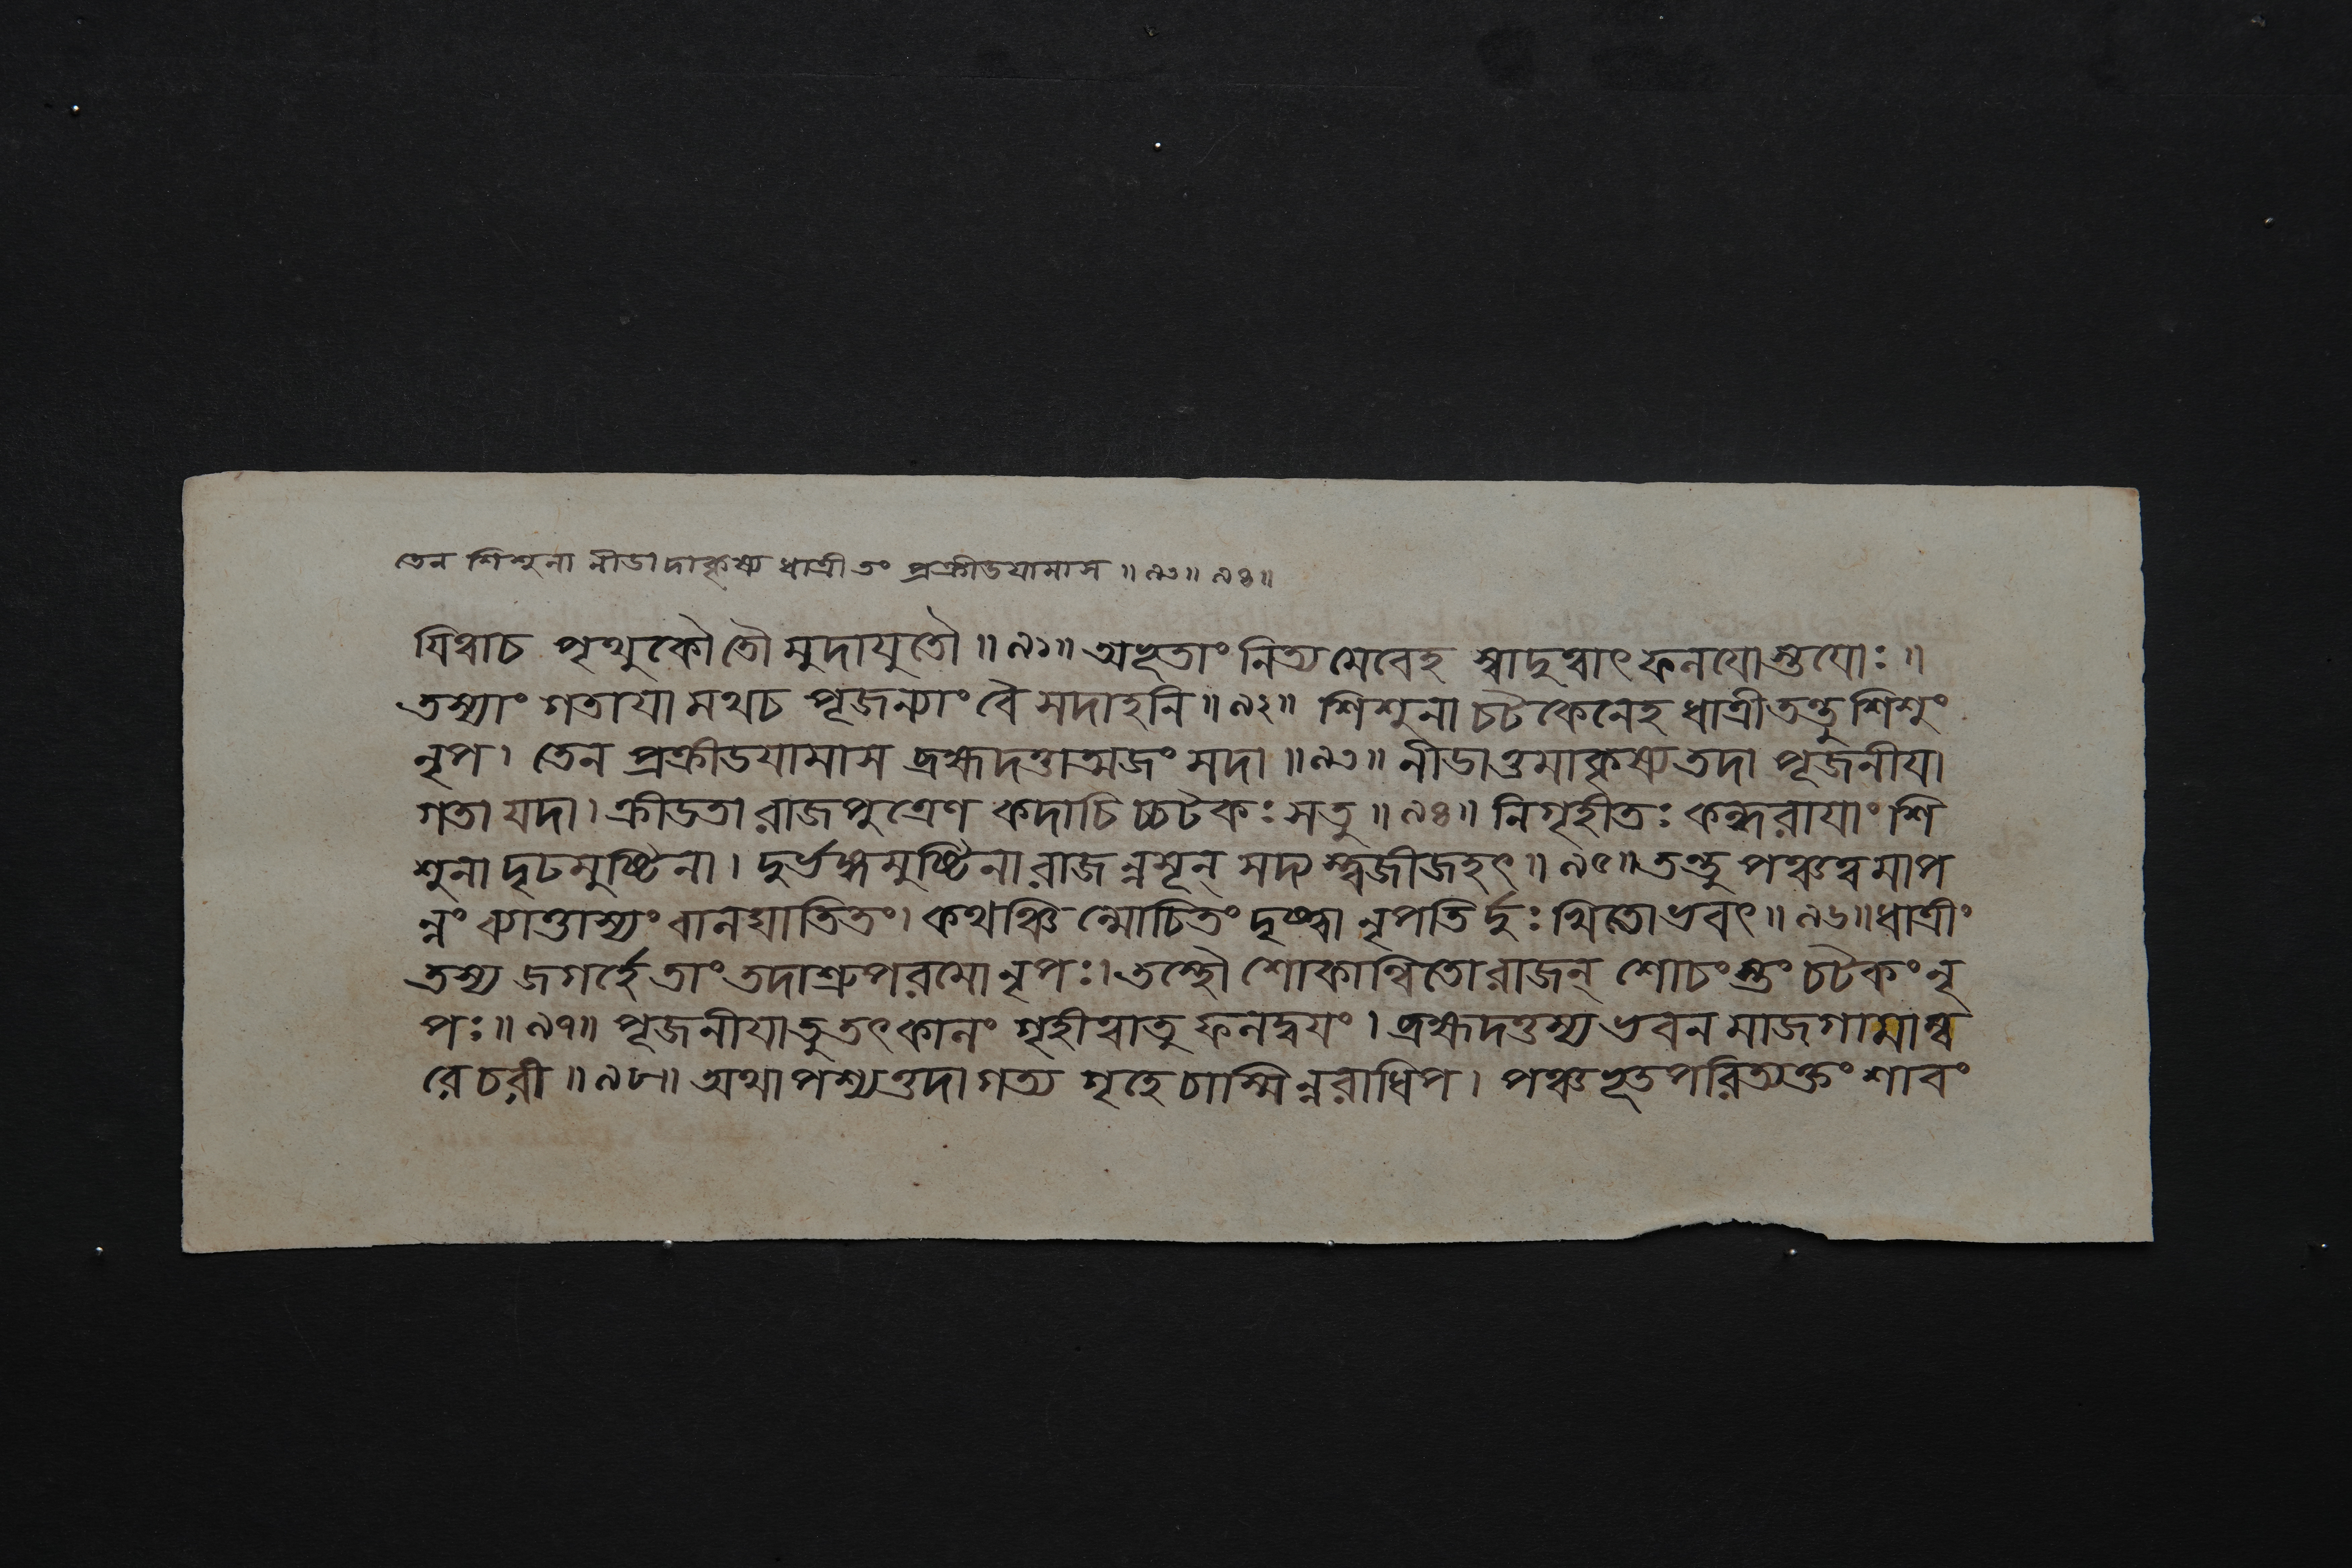 তেন শিশুনা নীডাদাকৃষ্য ধাত্রী তং প্রক্রীডযামাস ॥ ৯৩॥ ৯৪॥
যিত্বাচ পৃথুকৌ তৌ মুদাযুতৌ ॥ ৯১॥ অভূতাং নিত্যমেবেহ স্বাদুত্বাৎ ফলযোস্তুযোঃ ॥
তস্যাং গতাযামথচ পূজন্যাং বৈ সদাহনি ॥ ৯২॥ শিশুনা চটকেনেহ ধাত্রী তন্তু শিশুং
নৃপ। তেন প্রক্রীডযামাস ব্রহ্মদত্তাত্মজং সদা ॥ ৯৩॥ নীডাত্তমাকৃষ্য তদা পূজনীযা
গতা যদা। ক্রীডতা রাজপুত্রেণ কদাচিচ্চটকঃ সতু ॥ ৯৪॥ নিগৃহীতঃ কন্ধরাযাং শি
শুনা দৃঢমুষ্টিনা। দুর্ভঙ্গমুষ্টিনা রাজন্নসূন্ সদ্যস্ত্বজীজহৎ ॥ ৯৫॥ তন্তু পঞ্চত্বমাপ
ন্নং ব্যাত্তাস্যং বালঘাতিতং। কথঞ্চিন্মোচিতং দৃষ্ট্বা নৃপতির্দুঃখিতো ভবৎ ॥ ৯৬॥ ধাত্রীং
তস্য জগর্হে তাং তদাশ্রুপরমো নৃপঃ। তস্থৌ শোকান্বিতো রাজন্ শোচংস্তং চটকং নৃ
পঃ ॥ ৯৭॥ পূজনীযা তু তৎকালং গৃহীত্বা তু ফলদ্বযং। ব্রহ্মদত্তস্য ভবনমাজগামাম্ব
রেচরী ॥ ৯৮॥ অথাপশ্যত্তদাগত্য গৃহে চাস্মিন্নরাধিপ। পঞ্চভূতপরিত্যক্তং শাবং